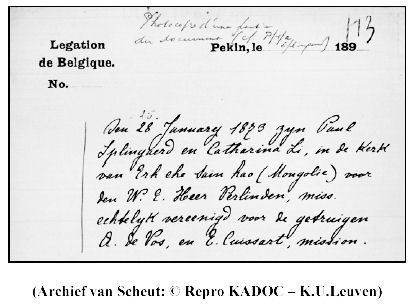 Photocopie d'une partie
du document (cf. P/I/a
Splingaerd)
113
Legation
de Belgique.
Pekin, le 189
No.
25
Den 28 January 1873 zyn Paul
Splingaerd en Catharina Li, in de Kerk
van Erh che Sain hao (Mongolie) voor
den W. E. Heer Verlinden, miss.
echtelyk vereenigd voor de getuigen
A. de Vos, en E. Cuissart, mission.
(Archief van Scheut: © Repro KADOC – K.U.Leuven)